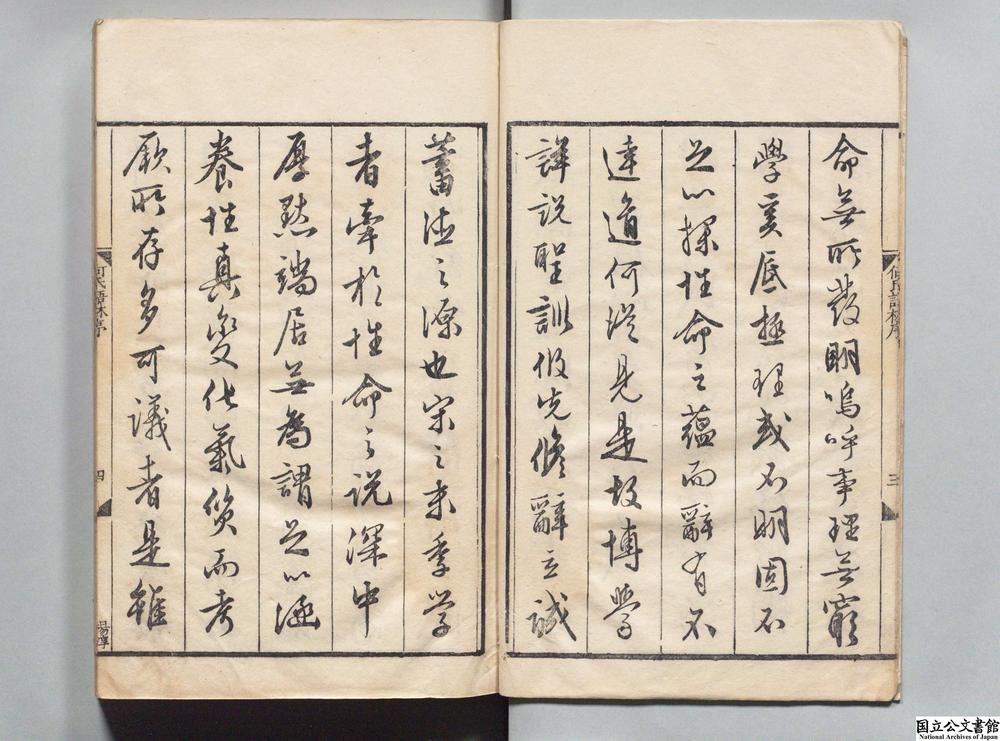 何氏語林序
三
命無所發明嗚呼事理無窮
學奚底極理或不明固不
足以探性命之蘊而辭有不
達道何從見是故博學
詳說聖訓攸先脩辭立誠
蓄德之源也宋之末季学
者牽於性命之说深中
厚默端居無為謂足以涵
養性真變化氣質而考
厥所存多可議者是雖
何氏語林序
四
国立公文書館
National Archives of Japan